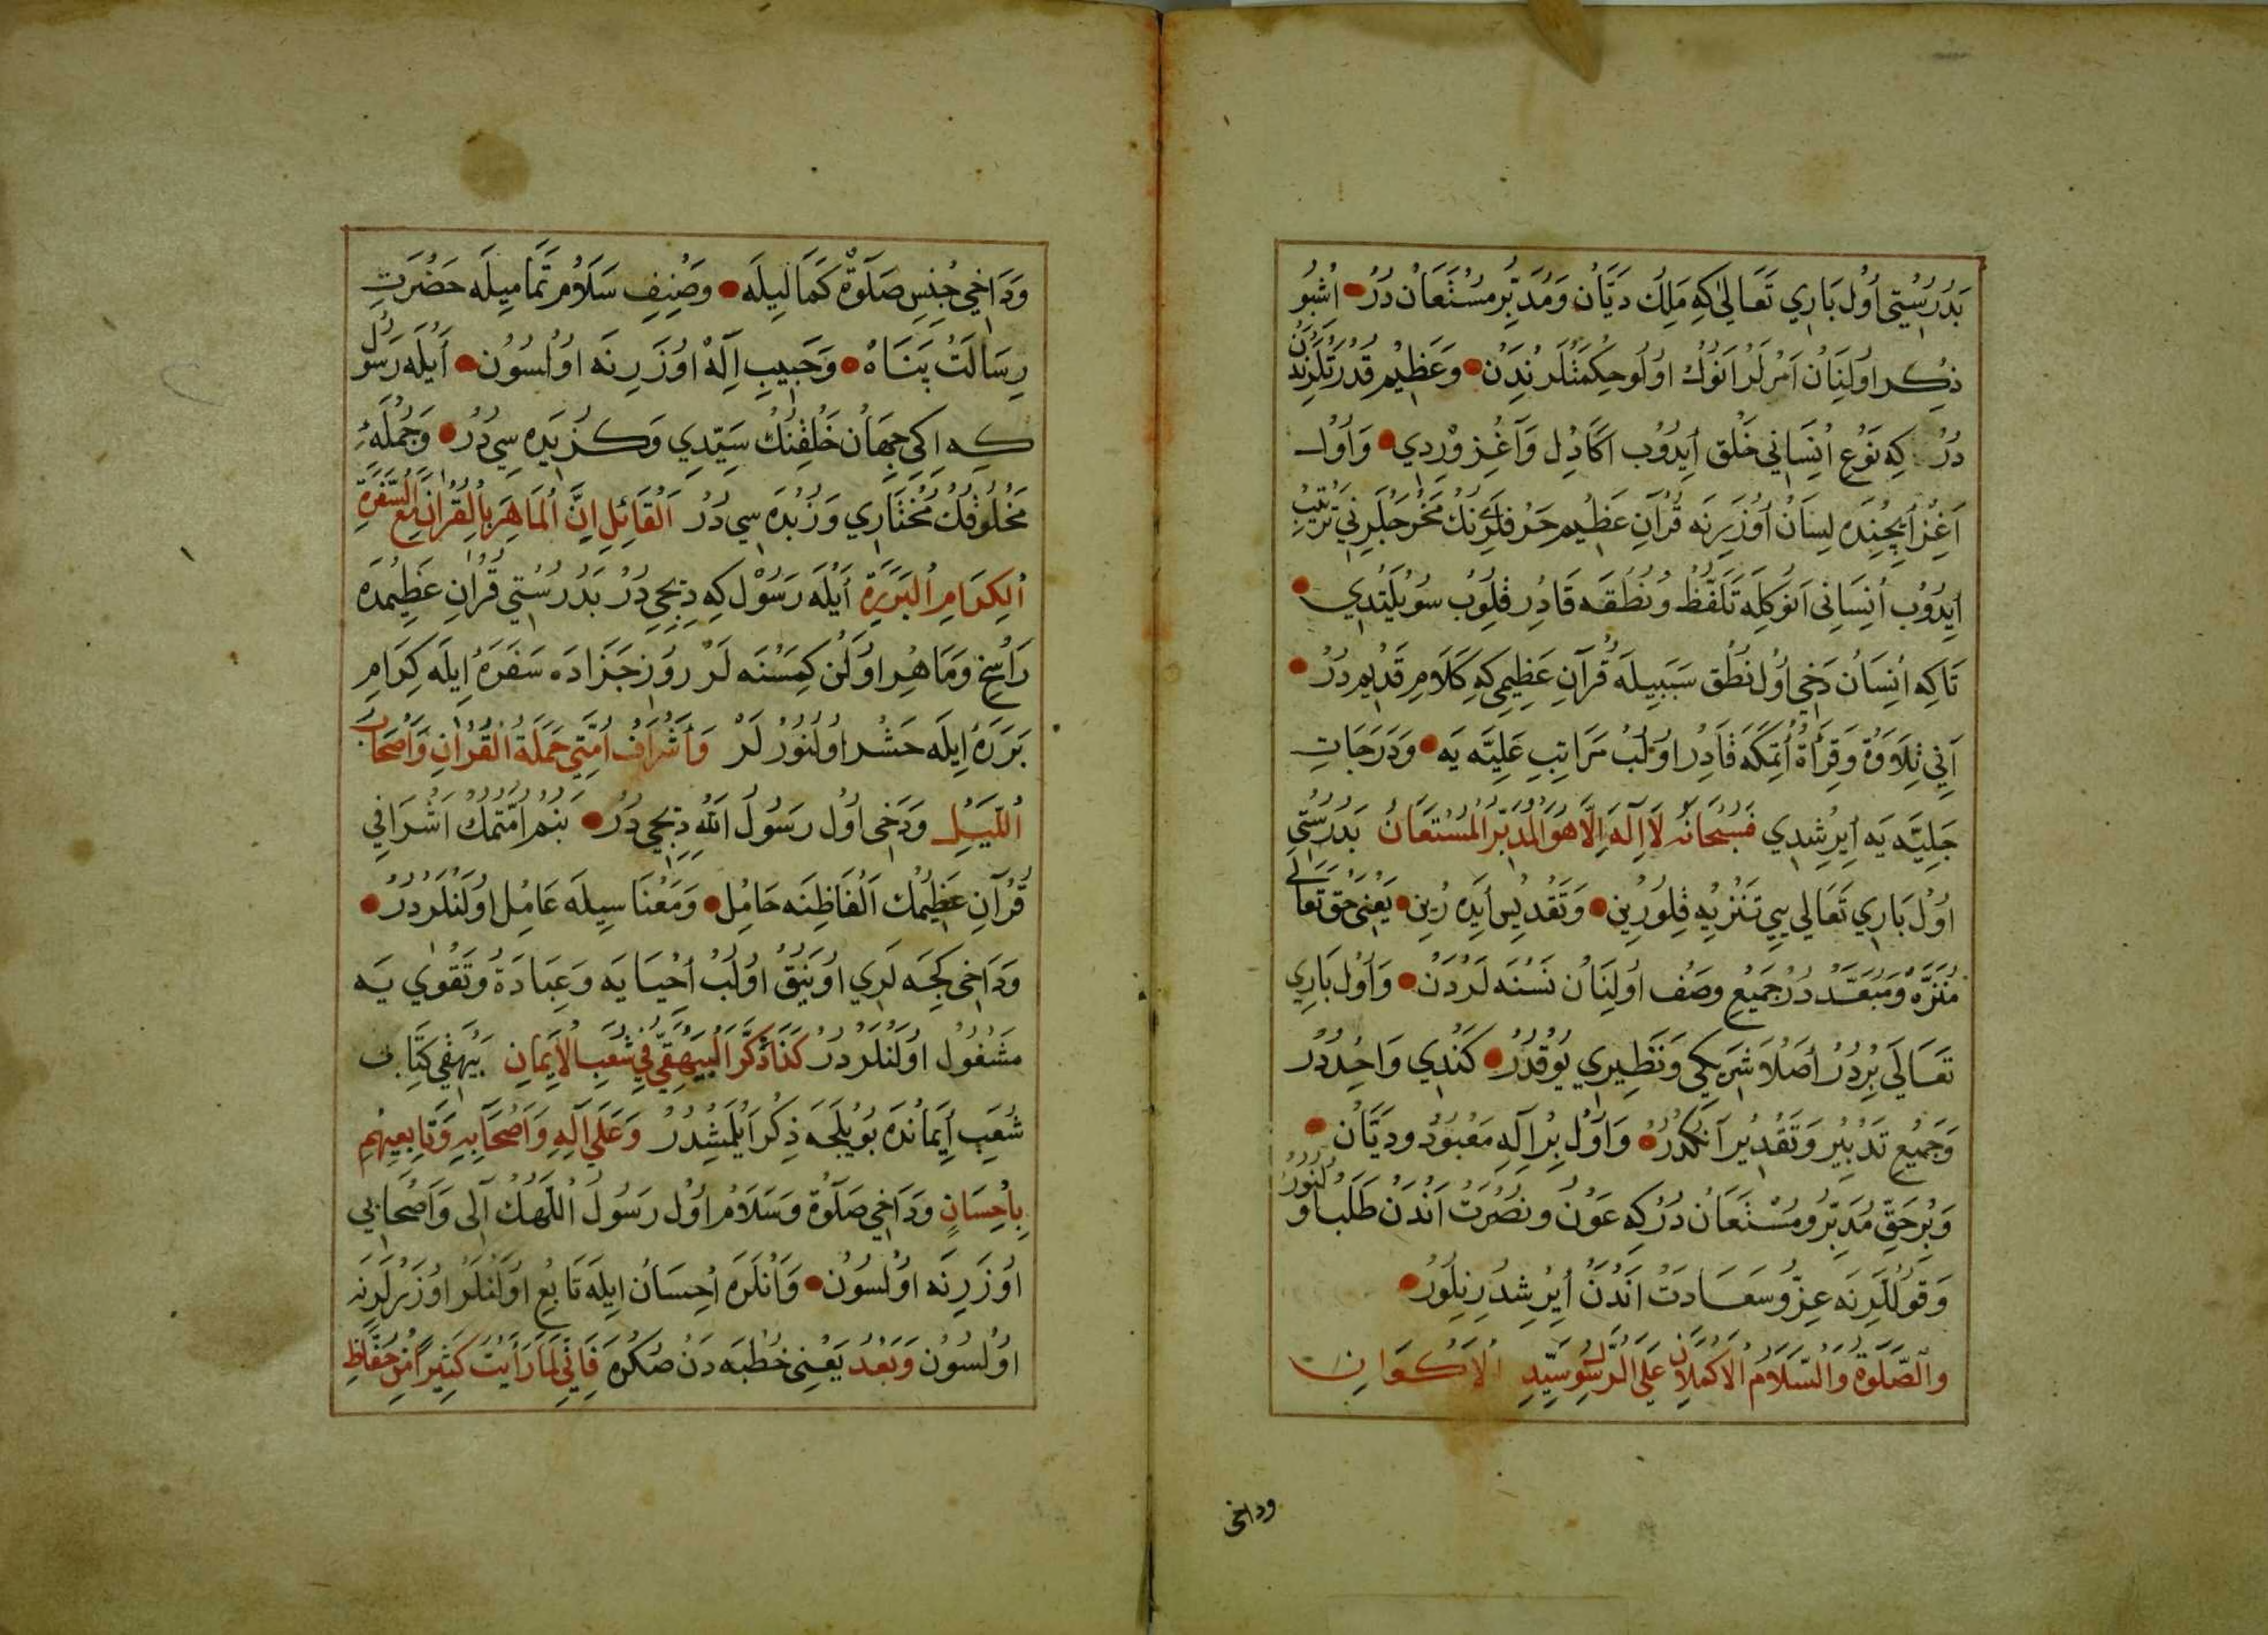 بَدُرُسْتِي أُولْ بَارِي تَعَالٰي كِه مَلِكْ دَيَّانْ وَمُدَبِّرِ مُسْتَعَانْ دُرْ اُشْبُو
ذِكْر اُولِنَانْ اَمْرلَرْ اَنُوكْ اُولُو حِكْمَتْلَرِنْدَنْ وَعَظِيمْ قُدْرَتْلَرِنْدَنْ
دُرْ كِه نَوْعِ اِنْسَانِي خَلْق اِيدُوبْ اَكَا دِلْ وَآغِزْ وِرْدِي وَاُولْ
اَغِزْ اِيچِنْدَه لِسَانْ اُوزَرِنَه قُرْآنِ عَظِيمْ حَرْفلَرِنُكْ مَخْرَجلَرِنِي تَرْتِيبْ
اِيدُوبْ اِنْسَانِي اَنُوكِلَه تَلَفُّظْ وَنُطْقَه قَادِر قِلُوبْ سُويْلَتْدِي
تَاكِه اِنْسَانْ دَخِي اُولْ نُطْق سَبَبِيلَه قُرْآنِ عَظِيمِي كِه كَلَامِ قَدِيمْ دُرْ
اَنِي تِلَاوَةْ وَقِرَاءَةْ اِتْمَكَه قَادِرْ اُولُبْ مَرَاتِبِ عَلِيَّه يَه وَدَرَجَاتِ
جَلِيَّه يَه اِيرِشْدِي فَسُبْحَانَهُ لَا اِلٰهَ اِلَّا هُوَ الْمُدَبِّرُ الْمُسْتَعَانُ بَدُرُسْتِي
اُولْ بَارِي تَعَالٰي يِي تَنْزِيه قِلُورِينْ وَتَقْدِيسْ اَيْدَه رِينْ يَعْنِي حَقْ تَعَالٰي
مُنَزَّه وَمُبَعَّدْ دُرْ جَمِيعِ وَصْف اُولِنَانْ نَسْنَه لَرْدَنْ وَاُولْ بَارِي
تَعَالَي بِرْدُرْ اَصْلَا شَرِيكِي وَنَظِيرِي يُوقْدُرْ كَنْدِي وَاحِدْدُرْ
وَجَمِيعِ تَدْبِيرْ وَتَقْدِيرْ اَنُكْدُرْ وَاُولْ بِرْ اِلٰهِ مَعْبُودْ وَدَيَّانْ
وَبِرْ حَقِّ مُدَبِّرْ وَمُسْتَعَانْ دُرْ كِه عَوْنْ وَنُصْرَتْ اَنْدَنْ طَلَبْ اُولُنُورْ
وَقُولْلَرِنَه عِزُّ وَسَعَادَتْ اَنْدَنْ اِيرِشْدِرِيلُورْ
وَالصَّلٰوةُ وَالسَّلَامُ الْاَكْمَلَانِ عَلَي الرَّسُولِ سَيِّدِ الْاَكْوَانِ
وداخى
وَدَاخِي جِنْسِ صَلٰوةْ كَمَالِيلَه وَصِنْفِ سَلَامْ تَمَامِيلَه حَضْرَتِ
رِسَالَتْ پَنَاهْ وَحَبِيبِ اِلٰهْ اُوزَرِنَه اُولْسُونْ اَيْلَه رَسُولْ
كِه اِكِي جِهَانْ خَلْقِنُكْ سَيِّدِي وَكُزِيدَه سِي دُرْ وَجُمْلَهءِ
مَخْلُوقُكْ مُخْتَارِي وَزُبْدَه سِي دُرْ اَلْقَائِلِ اِنَّ الْمَاهِرَ بِالْقُرْاٰنِ مَعَ السَّفَرَةِ
الْكِرَامِ الْبَرَرَةِ اَيْلَه رَسُولْ كِه دِيجِي دُرْ بَدُرُسْتِي قُرْاٰنِ عَظِيمْدَه
رَاسِخْ وَمَاهِرْ اُولَنْ كِمَسْنَه لَرْ رُوزِ جَزَادَه سَفَرَهْ اِيلَه كِرَامِ
بَرَرَهْ اِيلَه حَشْر اُولُنُورْلَرْ وَاَشْرَافُ اُمَّتِي حَمَلَةُ الْقُرْاٰنِ وَاَصْحَابُ
اللَّيْلِ وَدَخِي اُولْ رَسُولُ اللّٰهِ دِيجِي دُرْ بَنُمْ اُمَّتُمُكْ اَشْرَافِي
قُرْآنِ عَظِيمُكْ اَلْفَاظِنَه حَامِلْ وَمَعْنَاسِيلَه عَامِلْ اُولَنْلَرْدُرْ
وَدَاخِي كِجَه لَرِي اُويَنِقْ اُولُبْ اِحْيَايَه وَعِبَادَةْ وَتَقْوٰي يَه
مَشْغُولْ اُولَنْلَرْدُرْ كَذَا ذَكَرَ الْبَيْهَقِيُّ فِي شُعَبِ الْاِيمَانِ بَيْهَقِي كِتَابِ
شُعَبِ اِيمَانْدَه بُويْلَجَه ذِكْر اَيْلَمِشْدُرْ وَعَلَي آلِهِ وَاَصْحَابِهِ وَتَابِعِيهِمْ
بِاِحْسَانٍ وَدَاخِي صَلٰوةْ وَسَلَامْ اُولْ رَسُولُ اللّٰهُكْ آلِي وَاَصْحَابِي
اُوزَرِنَه اُولْسُونْ وَاَنْلَرَه اِحْسَانْ اِيلَه تَابِعْ اُولَنْلَرْ اُوزَرْلَرِنَه
اُولْسُونْ وَبَعْدُ يَعْنِي خُطْبَه دَنْ صُكْرَه فَاِنِّي لَمَّا رَاَيْتُ كَثِيراً مِنْ حُفَّاظِ